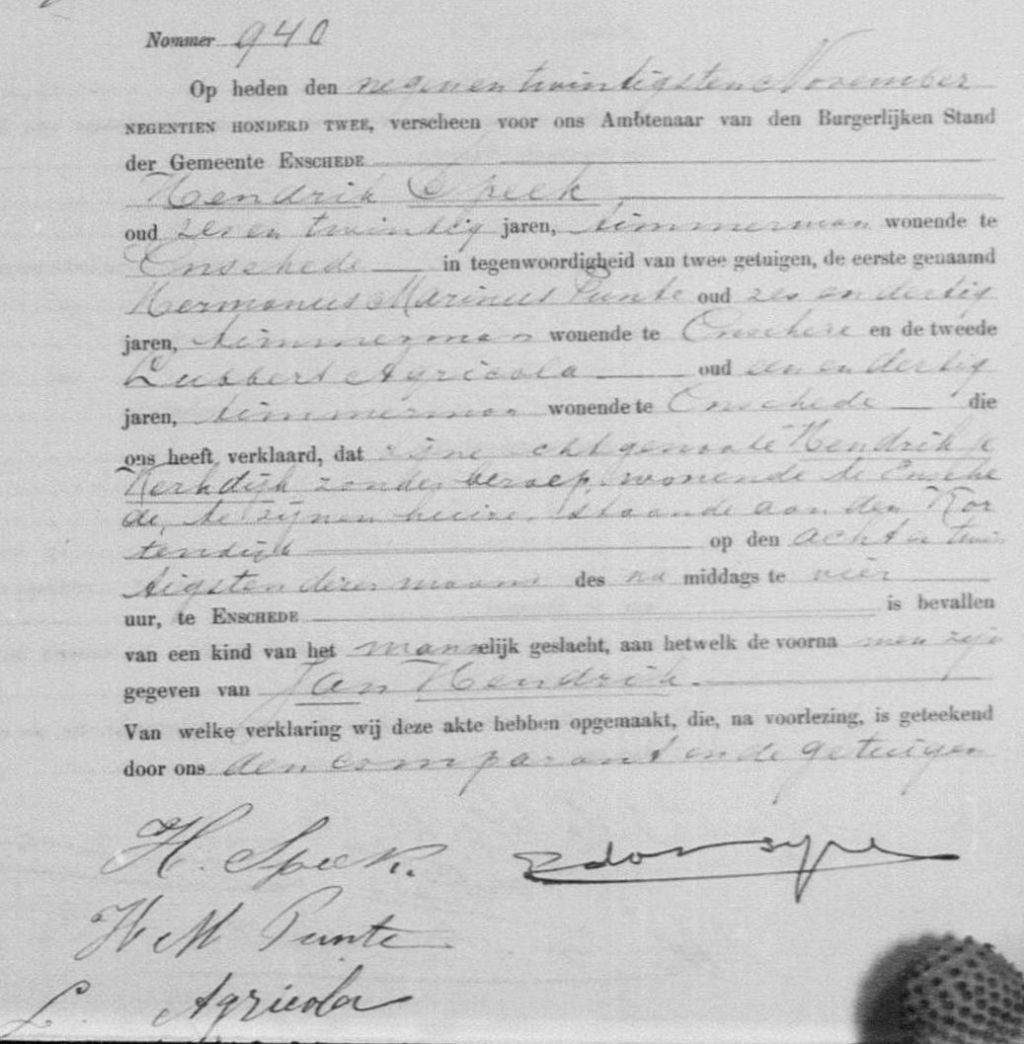 Nommer 940
Op heden den negenen twintigsten November
NEGENTIEN HONDERD TWEE, verscheen voor ons Ambtenaar van den Burgerlijken Stand
der Gemeente ENSCHEDE
Hendrik Speek
oud zes en twintig jaren, timmerman wonende te
Enschede in tegenwoordigheid van twee getuigen, de eerste genaamd
Hermanus Marinus Punte oud zes en dertig
jaren, timmerman wonende te Enschede en de tweede
Lubbert Agricola oud een en dertig
jaren, timmerman wonende te Enschede die
ons heeft verklaard, dat zijne echtgenoote Hendrik je
Kerkdijk zonder beroep, wonende te Ensche
de, te zijnen huize, staande aan den Kor
tendijk op den acht en twin
tigsten dezer maand des na middags te vier
uur, te ENSCHEDE is bevallen
van een kind van het mannelijk geslacht, aan hetwelk de voorna men zijn
gegeven van Jan Hendrik.
Van welke verklaring wij deze akte hebben opgemaakt, die, na voorlezing, is geteekend
door ons den comparant en de getuigen
H. Speek.
H M Punte
L. Agricola